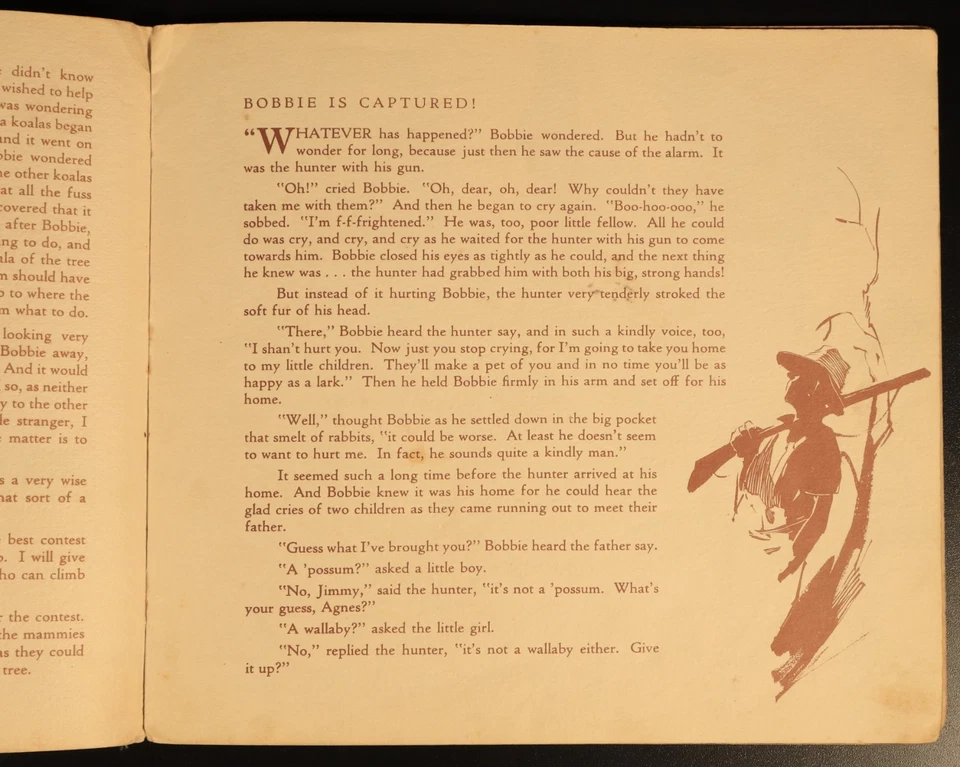 didn't know
wished to help
was wondering
a koalas began
and it went on
bbie wondered
other koalas
at all the fuss
covered that it
after Bobbie,
ng to do, and
ala of the tree
should have
to where the
m what to do.
looking very
Bobbie away,
And it would
so, as neither
y to the other
stranger, I
matter is to
s a very wise
hat sort of a
best contest
I will give
ho can climb
the contest.
the mammies
as they could
tree.
BOBBIE IS CAPTURED!
“WHATEVER has happened?” Bobbie wondered. But he hadn't to
wonder for long, because just then he saw the cause of the alarm. It
was the hunter with his gun.
“Oh!” cried Bobbie. “Oh, dear, oh, dear! Why couldn't they have
taken me with them?” And then he began to cry again. “Boo-hoo-ooo,” he
sobbed. “I'm f-f-frightened.” He was, too, poor little fellow. All he could
do was cry, and cry, and cry as he waited for the hunter with his gun to come
towards him. Bobbie closed his eyes as tightly as he could, and the next thing
he knew was . . . the hunter had grabbed him with both his big, strong hands!
But instead of it hurting Bobbie, the hunter very tenderly stroked the
soft fur of his head.
“There,” Bobbie heard the hunter say, and in such a kindly voice, too,
“I shan't hurt you. Now just you stop crying, for I'm going to take you home
to my little children. They'll make a pet of you and in no time you'll be as
happy as a lark.” Then he held Bobbie firmly in his arm and set off for his
home.
“Well,” thought Bobbie as he settled down in the big pocket
that smelt of rabbits, “it could be worse. At least he doesn't seem
to want to hurt me. In fact, he sounds quite a kindly man.”
It seemed such a long time before the hunter arrived at his
home. And Bobbie knew it was his home for he could hear the
glad cries of two children as they came running out to meet their
father.
“Guess what I've brought you?” Bobbie heard the father say.
“A 'possum?” asked a little boy.
“No, Jimmy,” said the hunter, “it's not a 'possum. What's
your guess, Agnes?”
“A wallaby?” asked the little girl.
“No,” replied the hunter, “it's not a wallaby either. Give
it up?”